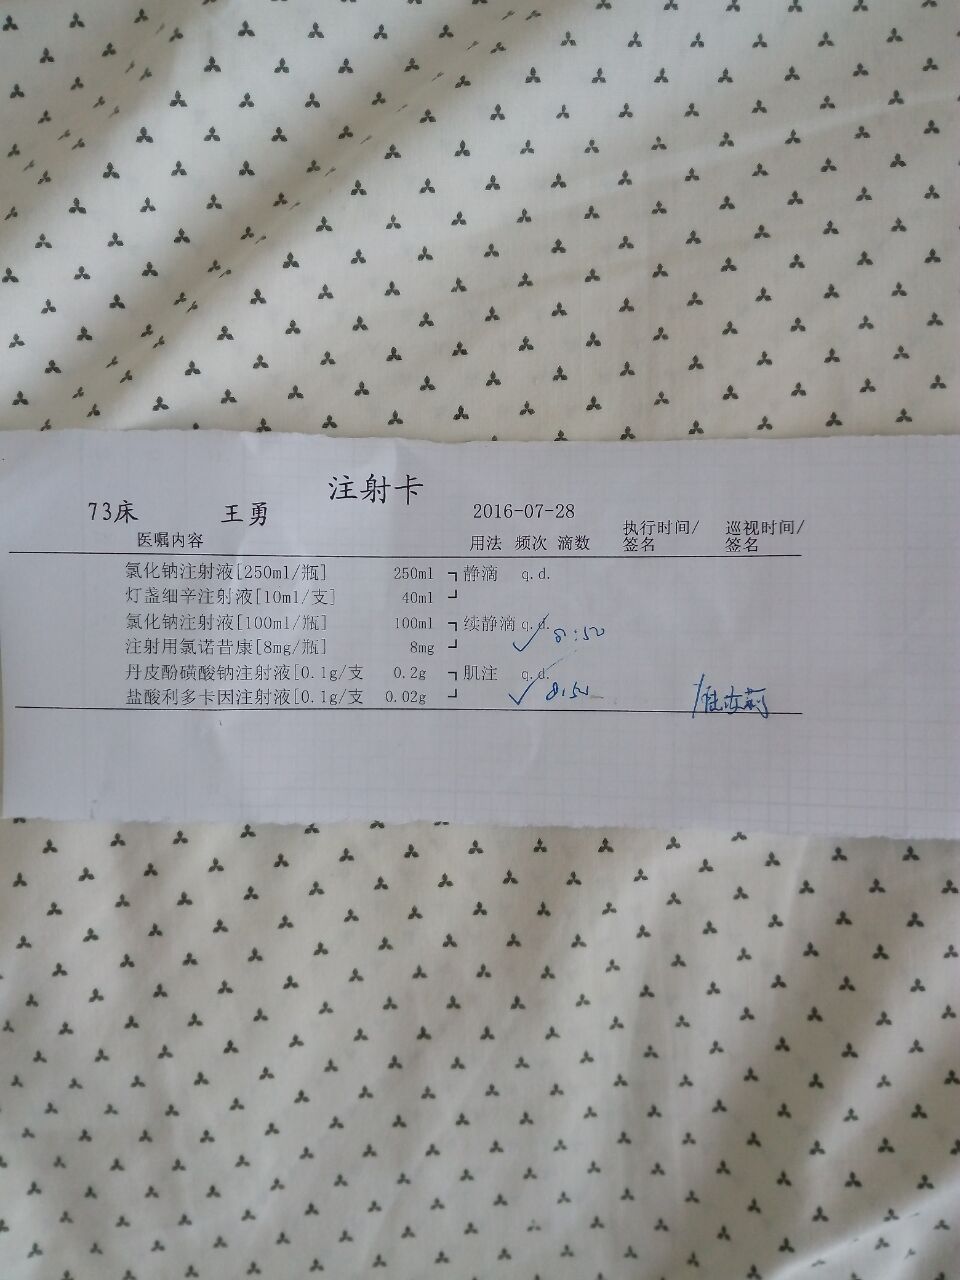 注射卡
73床 王勇 2016-07-28
医嘱内容 用法 频次 滴数 执行时间/签名 巡视时间/签名
氯化钠注射液[250ml/瓶] 250ml ┐静滴 q.d.
灯盏细辛注射液[10ml/支] 40ml ┘
氯化钠注射液[100ml/瓶] 100ml ┐续静滴 q.d.
注射用氯诺昔康[8mg/瓶] 8mg ┘ ✓ 8:50
丹皮酚磺酸钠注射液[0.1g/支 0.2g ┐肌注 q.d.
盐酸利多卡因注射液[0.1g/支 0.02g ┘ ✓